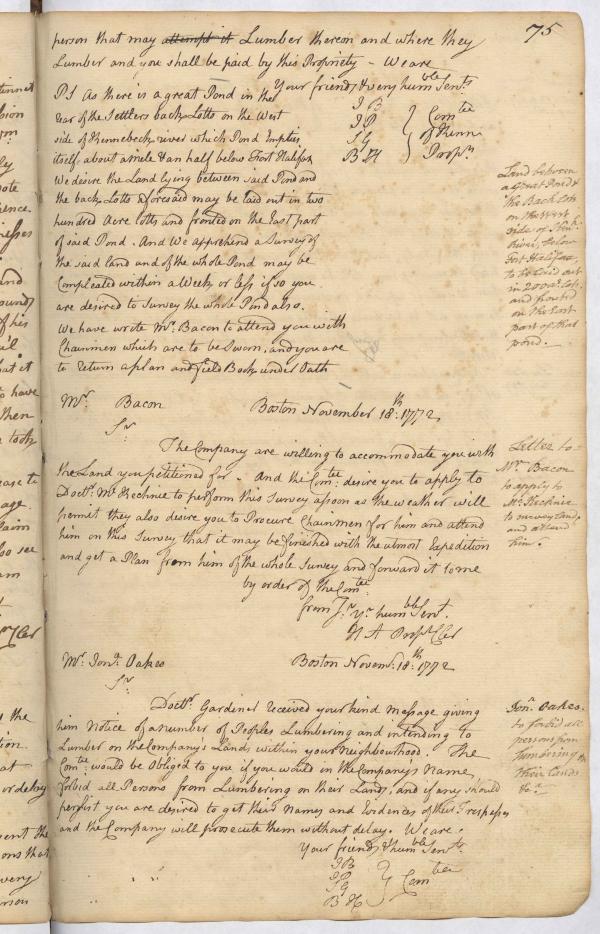 75
person that may attempt it Lumber thereon and where they
Lumber and you shall be paid by this Propriety – We are
Your friends & very humble Servts
PS As there is a great Pond in the
rear of the Settlers back Lotts on the West
side of Kennebeck river which Pond Empties
itself about a mile & an half below Fort Halifax
We desire the Land lying between said Pond and
the back Lotts aforesaid may be laid out in two
hundred Acre lotts and fronted on the East part
of said Pond. And We apprehend a Survey of
the said land and of the whole Pond may be
Compleated within a Week or less if so you
are desired to Survey the whole Pond also.
We have wrote Mr. Bacon to attend you with
Chainmen which are to be Sworn, and you are
to return a plan and field Book under Oath
J B
J P
S G
B H
Comtee
of Kenn
Proprs
Land between
a great Pond &
the Back Lots
on the West
side of Kenk
River, below
Fort Halifax,
to be laid out
in 200 a. lots,
and fronted
on the East
part of that
pond.
Mr. Bacon Boston November 18th. 1772
Sr
The Company are willing to accommodate you with
the Land you petitioned for. And the Comtee: desire you to apply to
Doctr. McKechnie to perform this Survey as soon as the weather will
permit they also desire you to Procure Chainmen for him and attend
him on this Survey that it may be finished with the utmost Expedition
and get a Plan from him of the whole Survey and forward it to me
by order of the Comtee
from Sr. Yr. humble Servt.
H A Proprs Cler
Letter to
Mr. Bacon
to apply to
McKechnie
to survey Land,
and attend
him.
Mr. Jonn. Oakes Boston Novemr. 18th. 1772
Sr
Doctr. Gardiner received your kind Message giving
him Notice of a number of Peoples Lumbering and intending to
Lumber on the Company's Lands within your Neighbourhood. The
Comtee: would be Obliged to you if you would in the Company's Name,
forbid all Persons from Lumbering on their Lands, and if any should
persist you are desired to get their Names and Evidences of their Trespasses
and the Company will prosecute them without delay. We are
Your friends & humble Servts
J B
J P
S G
B H
Comtee
Jonn. Oakes.
to forbid all
persons from
lumbering on
their Lands
&ca